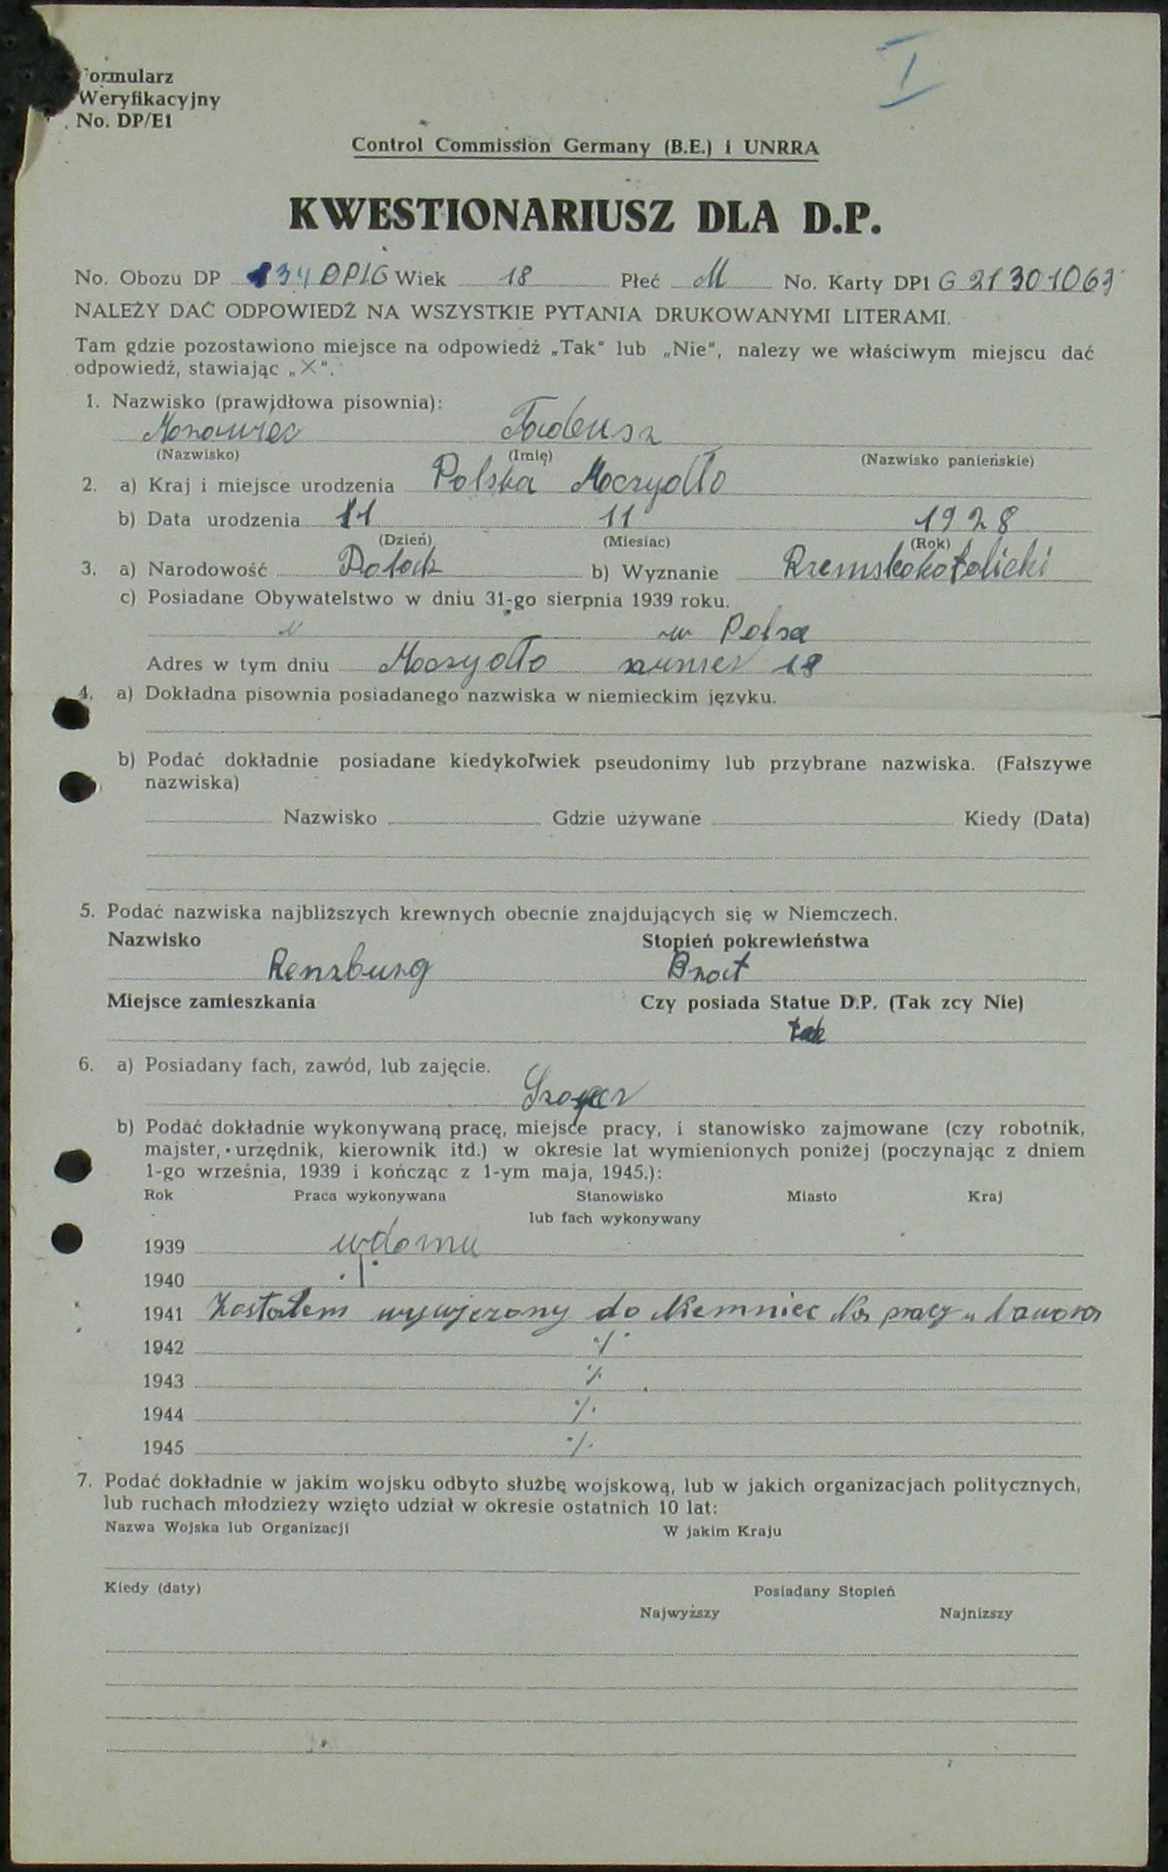 I
Formularz
Weryfikacyjny
No. DP/E1
Control Commission Germany (B.E.) i UNRRA
KWESTIONARIUSZ DLA D.P.
No. Obozu DP 134 DPLG Wiek 18 Płeć M No. Karty DP1 G 21301063
NALEŻY DAĆ ODPOWIEDŹ NA WSZYSTKIE PYTANIA DRUKOWANYMI LITERAMI.
Tam gdzie pozostawiono miejsce na odpowiedź „Tak" lub „Nie", nalezy we właściwym miejscu dać
odpowiedź, stawiając „X".
1. Nazwisko (prawidłowa pisownia):
Tadeusz
(Nazwisko) (Imię) (Nazwisko panieńskie)
2. a) Kraj i miejsce urodzenia Polska Moczydło
b) Data urodzenia 11 11 1928
(Dzień) (Miesiac) (Rok)
3. a) Narodowość Polak b) Wyznanie Rzemskokatolicki
c) Posiadane Obywatelstwo w dniu 31-go sierpnia 1939 roku.
w Polsce
Adres w tym dniu Moczydło numer 18
4. a) Dokładna pisownia posiadanego nazwiska w niemieckim języku.
b) Podać dokładnie posiadane kiedykolwiek pseudonimy lub przybrane nazwiska. (Fałszywe
nazwiska)
Nazwisko Gdzie używane Kiedy (Data)
5. Podać nazwiska najbliższych krewnych obecnie znajdujących się w Niemczech.
Nazwisko Stopień pokrewieństwa
Renzburg Brat
Miejsce zamieszkania Czy posiada Statue D.P. (Tak zcy Nie)
tak
6. a) Posiadany fach, zawód, lub zajęcie.
b) Podać dokładnie wykonywaną pracę, miejsce pracy, i stanowisko zajmowane (czy robotnik,
majster, urzędnik, kierownik itd.) w okresie lat wymienionych poniżej (poczynając z dniem
1-go września, 1939 i kończąc z 1-ym maja, 1945.):
Rok Praca wykonywana Stanowisko Miasto Kraj
lub fach wykonywany
1939 w domu
1940 ./.
1941 Zostałem wywjezony do Niemniec Na pracy u
1942 ./.
1943 ./.
1944 ./.
1945 ./.
7. Podać dokładnie w jakim wojsku odbyto służbę wojskową, lub w jakich organizacjach politycznych,
lub ruchach młodzieży wzięto udział w okresie ostatnich 10 lat:
Nazwa Wojska lub Organizacji W jakim Kraju
Kiedy (daty) Posiadany Stopień
Najwyższy Najnizszy